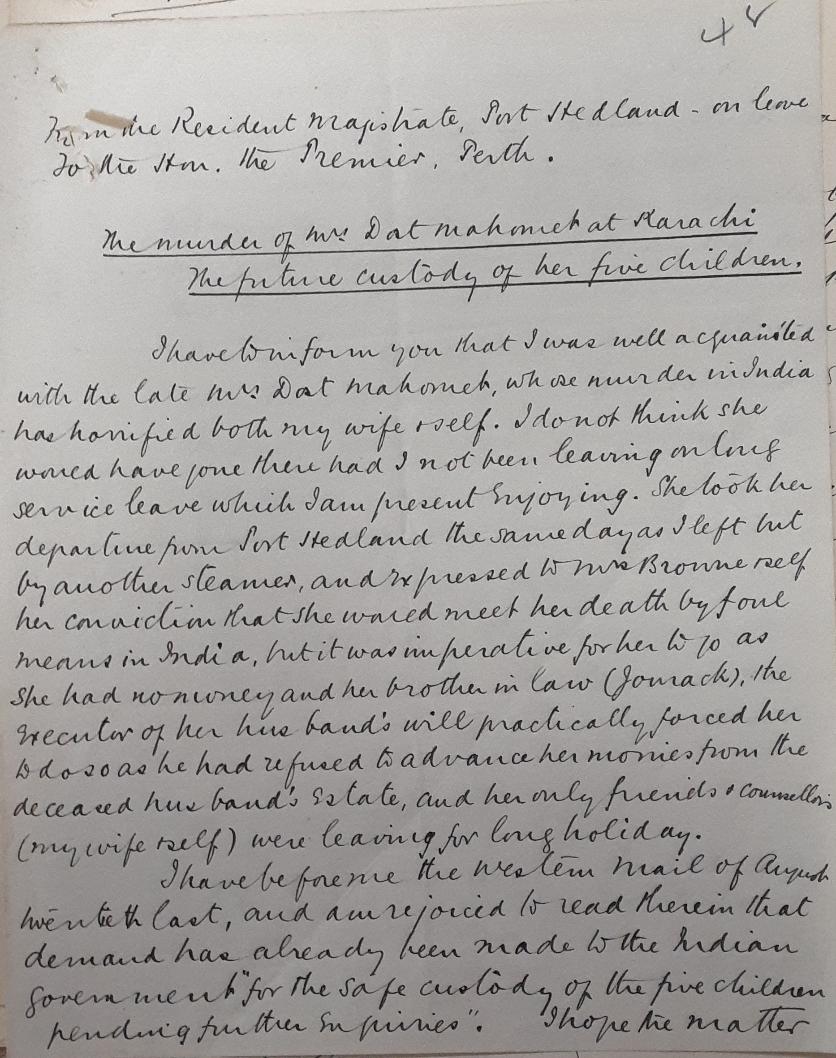 48
From the Resident Magistrate, Port Hedland - on leave
To the Hon. the Premier, Perth.
The murder of Mrs Dost Mahomet at Karachi
The future custody of her five children.
I have to inform you that I was well acquainted
with the late Mrs Dost Mahomet, whose murder in India
has horrified both my wife & self. I do not think she
would have gone there had I not been leaving on long
service leave which I am present enjoying. She took her
departure from Port Hedland the same day as I left but
by another steamer, and expressed to Mrs Browne & self
her conviction that she would meet her death by foul
means in India, but it was imperative for her to go as
she had no money and her brother in law (Jourack), the
Executor of her husband's will practically forced her
to do so as he had refused to advance her monies from the
deceased husband's Estate, and her only friends & counsellors
(my wife & self) were leaving for long holiday.
I have before me the Western Mail of August
twentieth last, and am rejoiced to read therein that
demand has already been made to the Indian
Government "for the safe custody of the five children
pending further Enquiries". I hope the matter